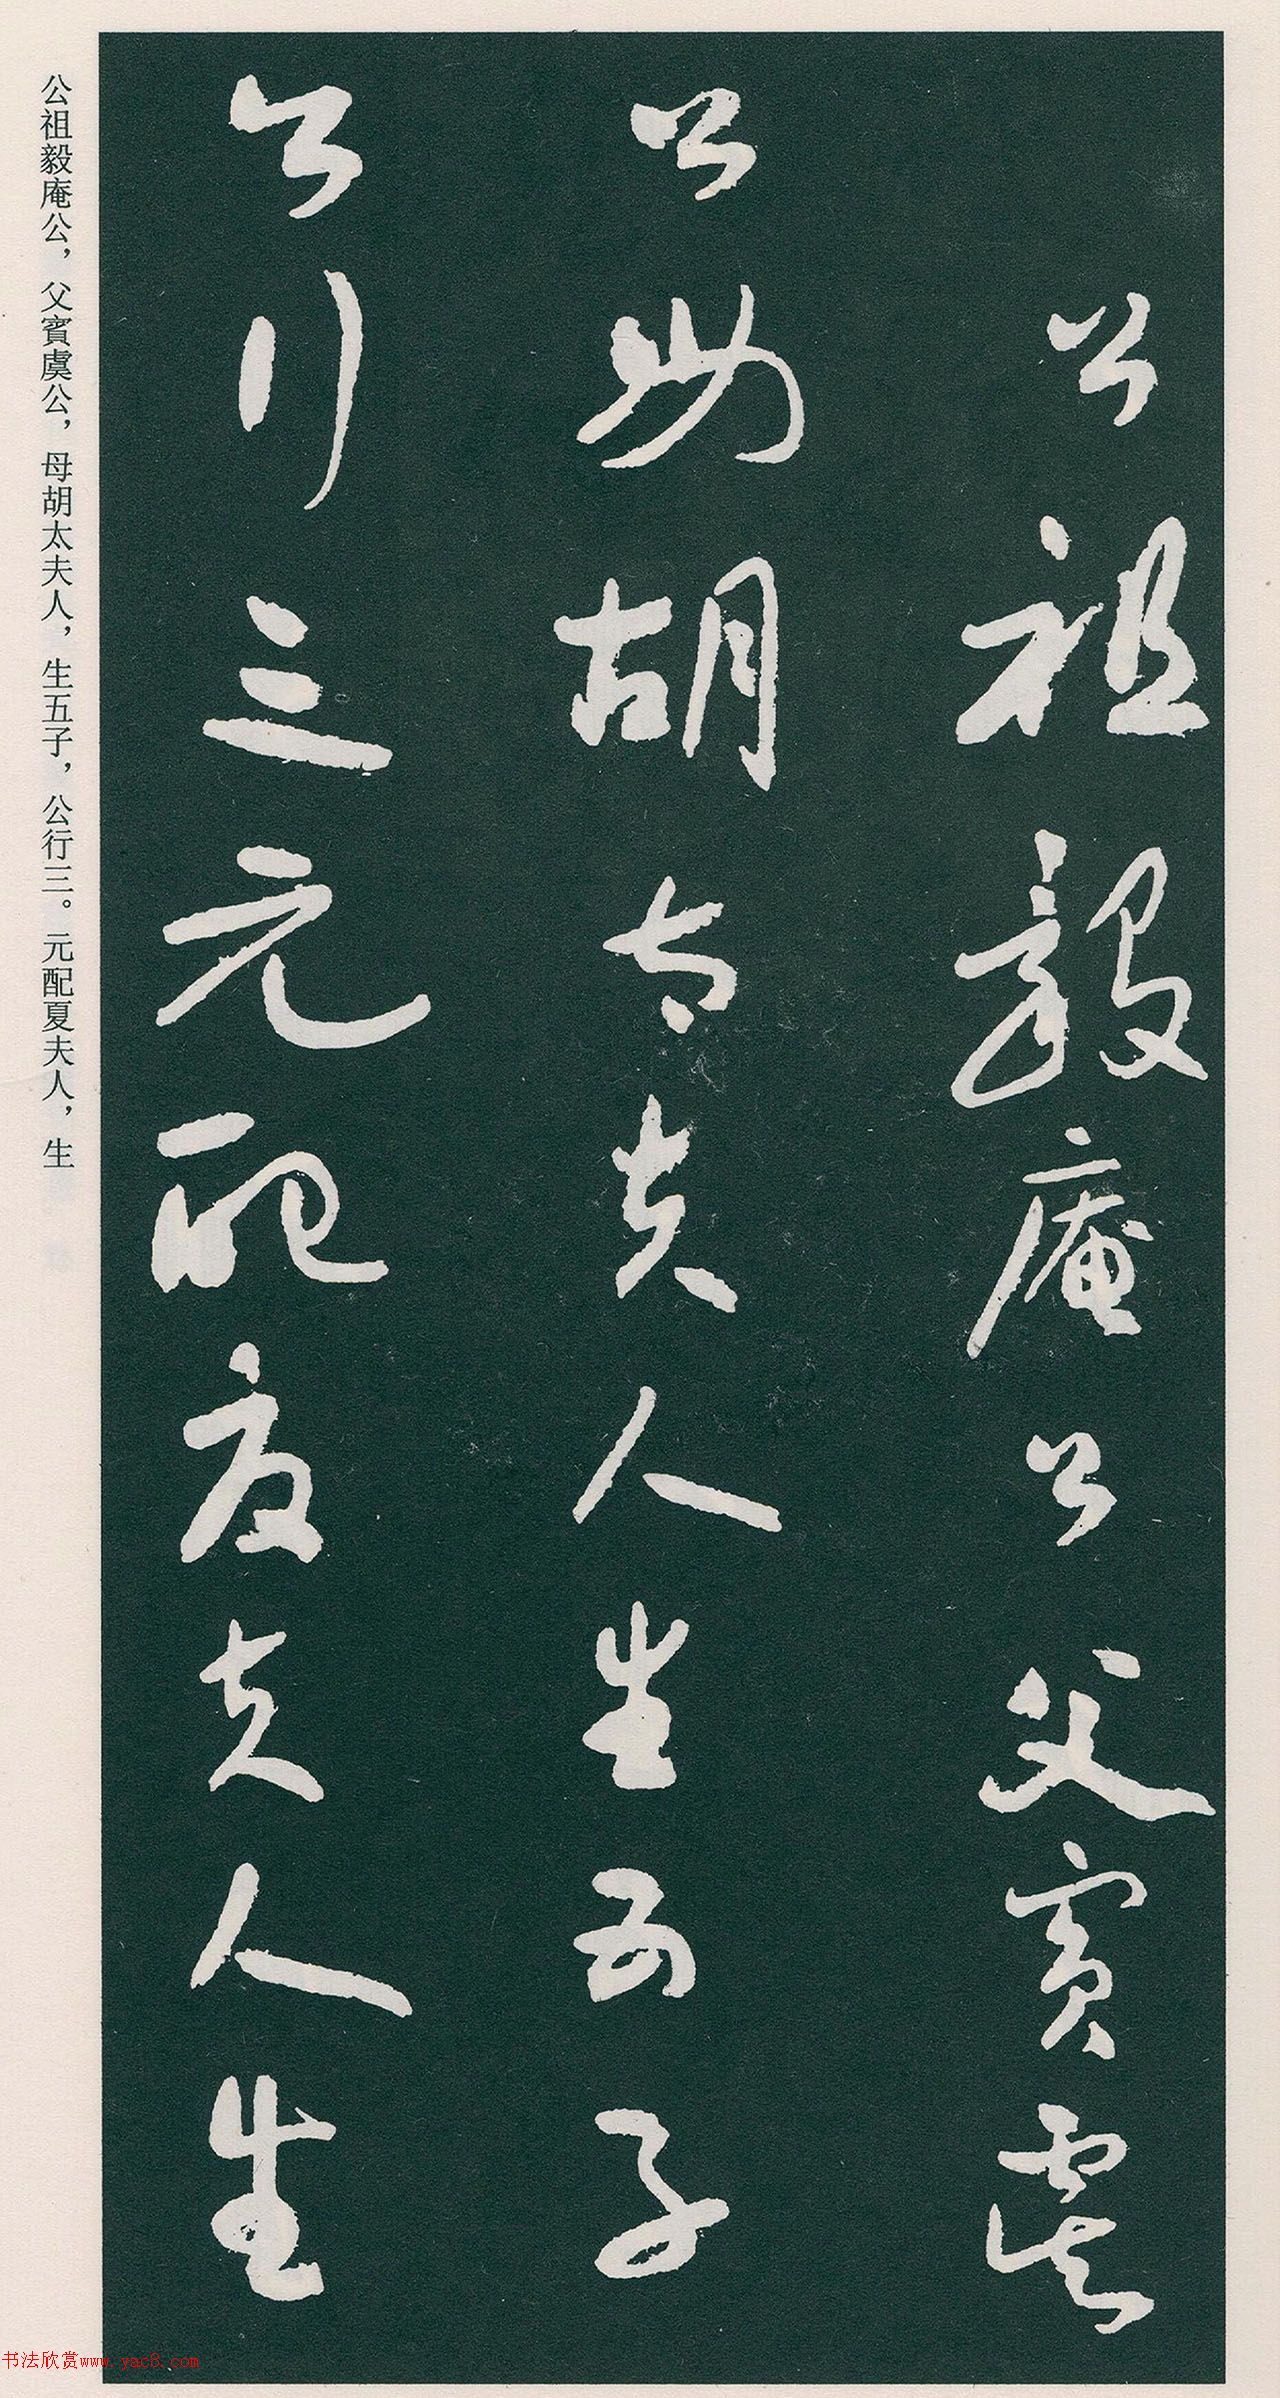 公祖毅庵公父賓虞
公母胡太夫人生五子
公行三元配夏夫人生
公祖毅庵公，父賓虞公，母胡太夫人，生五子，公行三。元配夏夫人，生
书法欣赏www.yac8.com